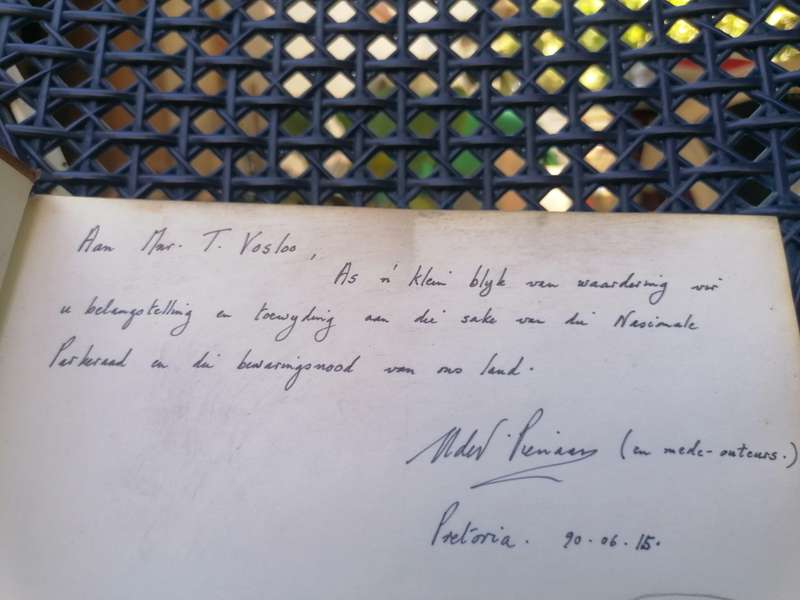 Aan Mnr. T. Vosloo,
As 'n klein blyk van waardering vir
u belangstelling en toewyding aan die sake van die Nasionale
Parkeraad en die bewaringsnood van ons land.
UdeV. Pienaar (en mede-outeurs.)
Pretoria. 90.06.15.